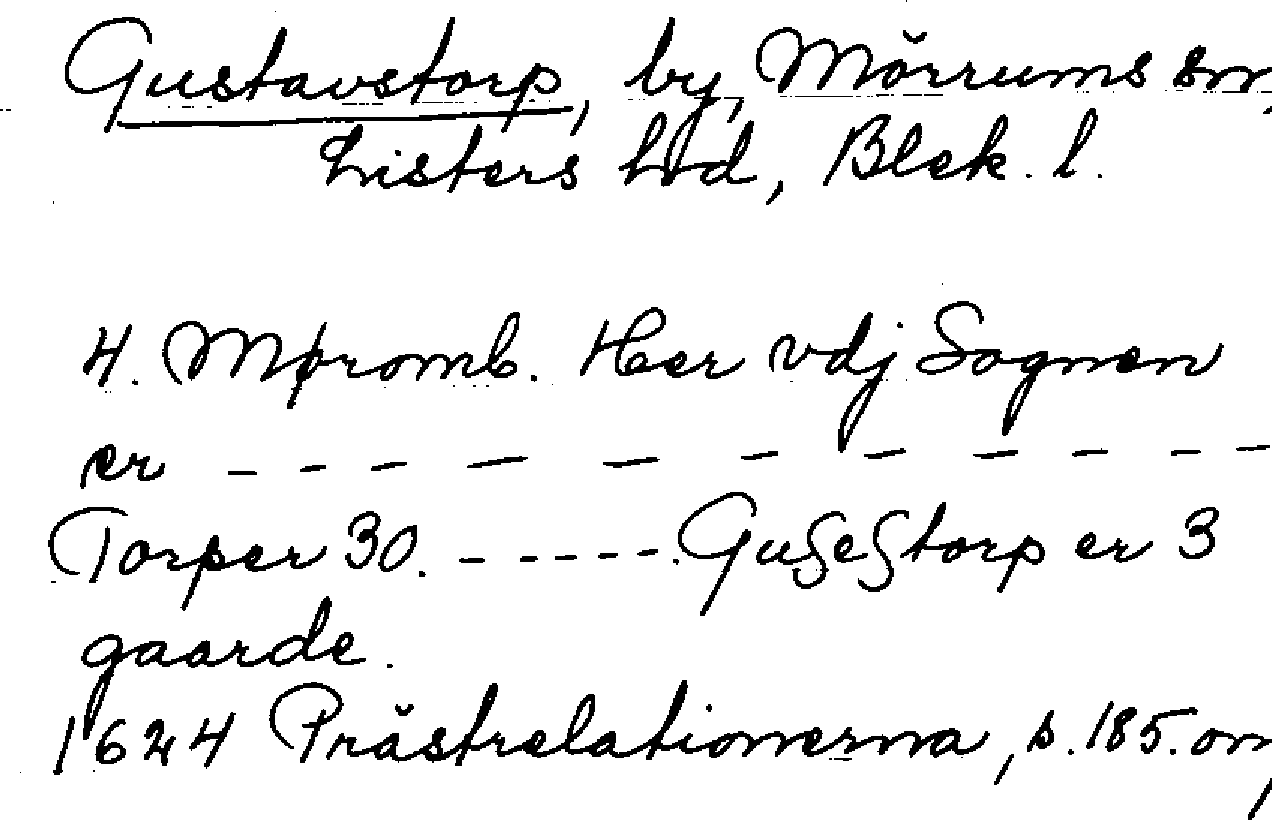 Gustavstorp, by, Mörrums sn,
Listers hd, Blek. l.
4. Møromb. Her vdj Sognen
er - - - - - - - - - - -
Torper 30. - - - - - Gußeßtorp er 3
gaarde.
1624 Prästrelationerna, s. 185. om